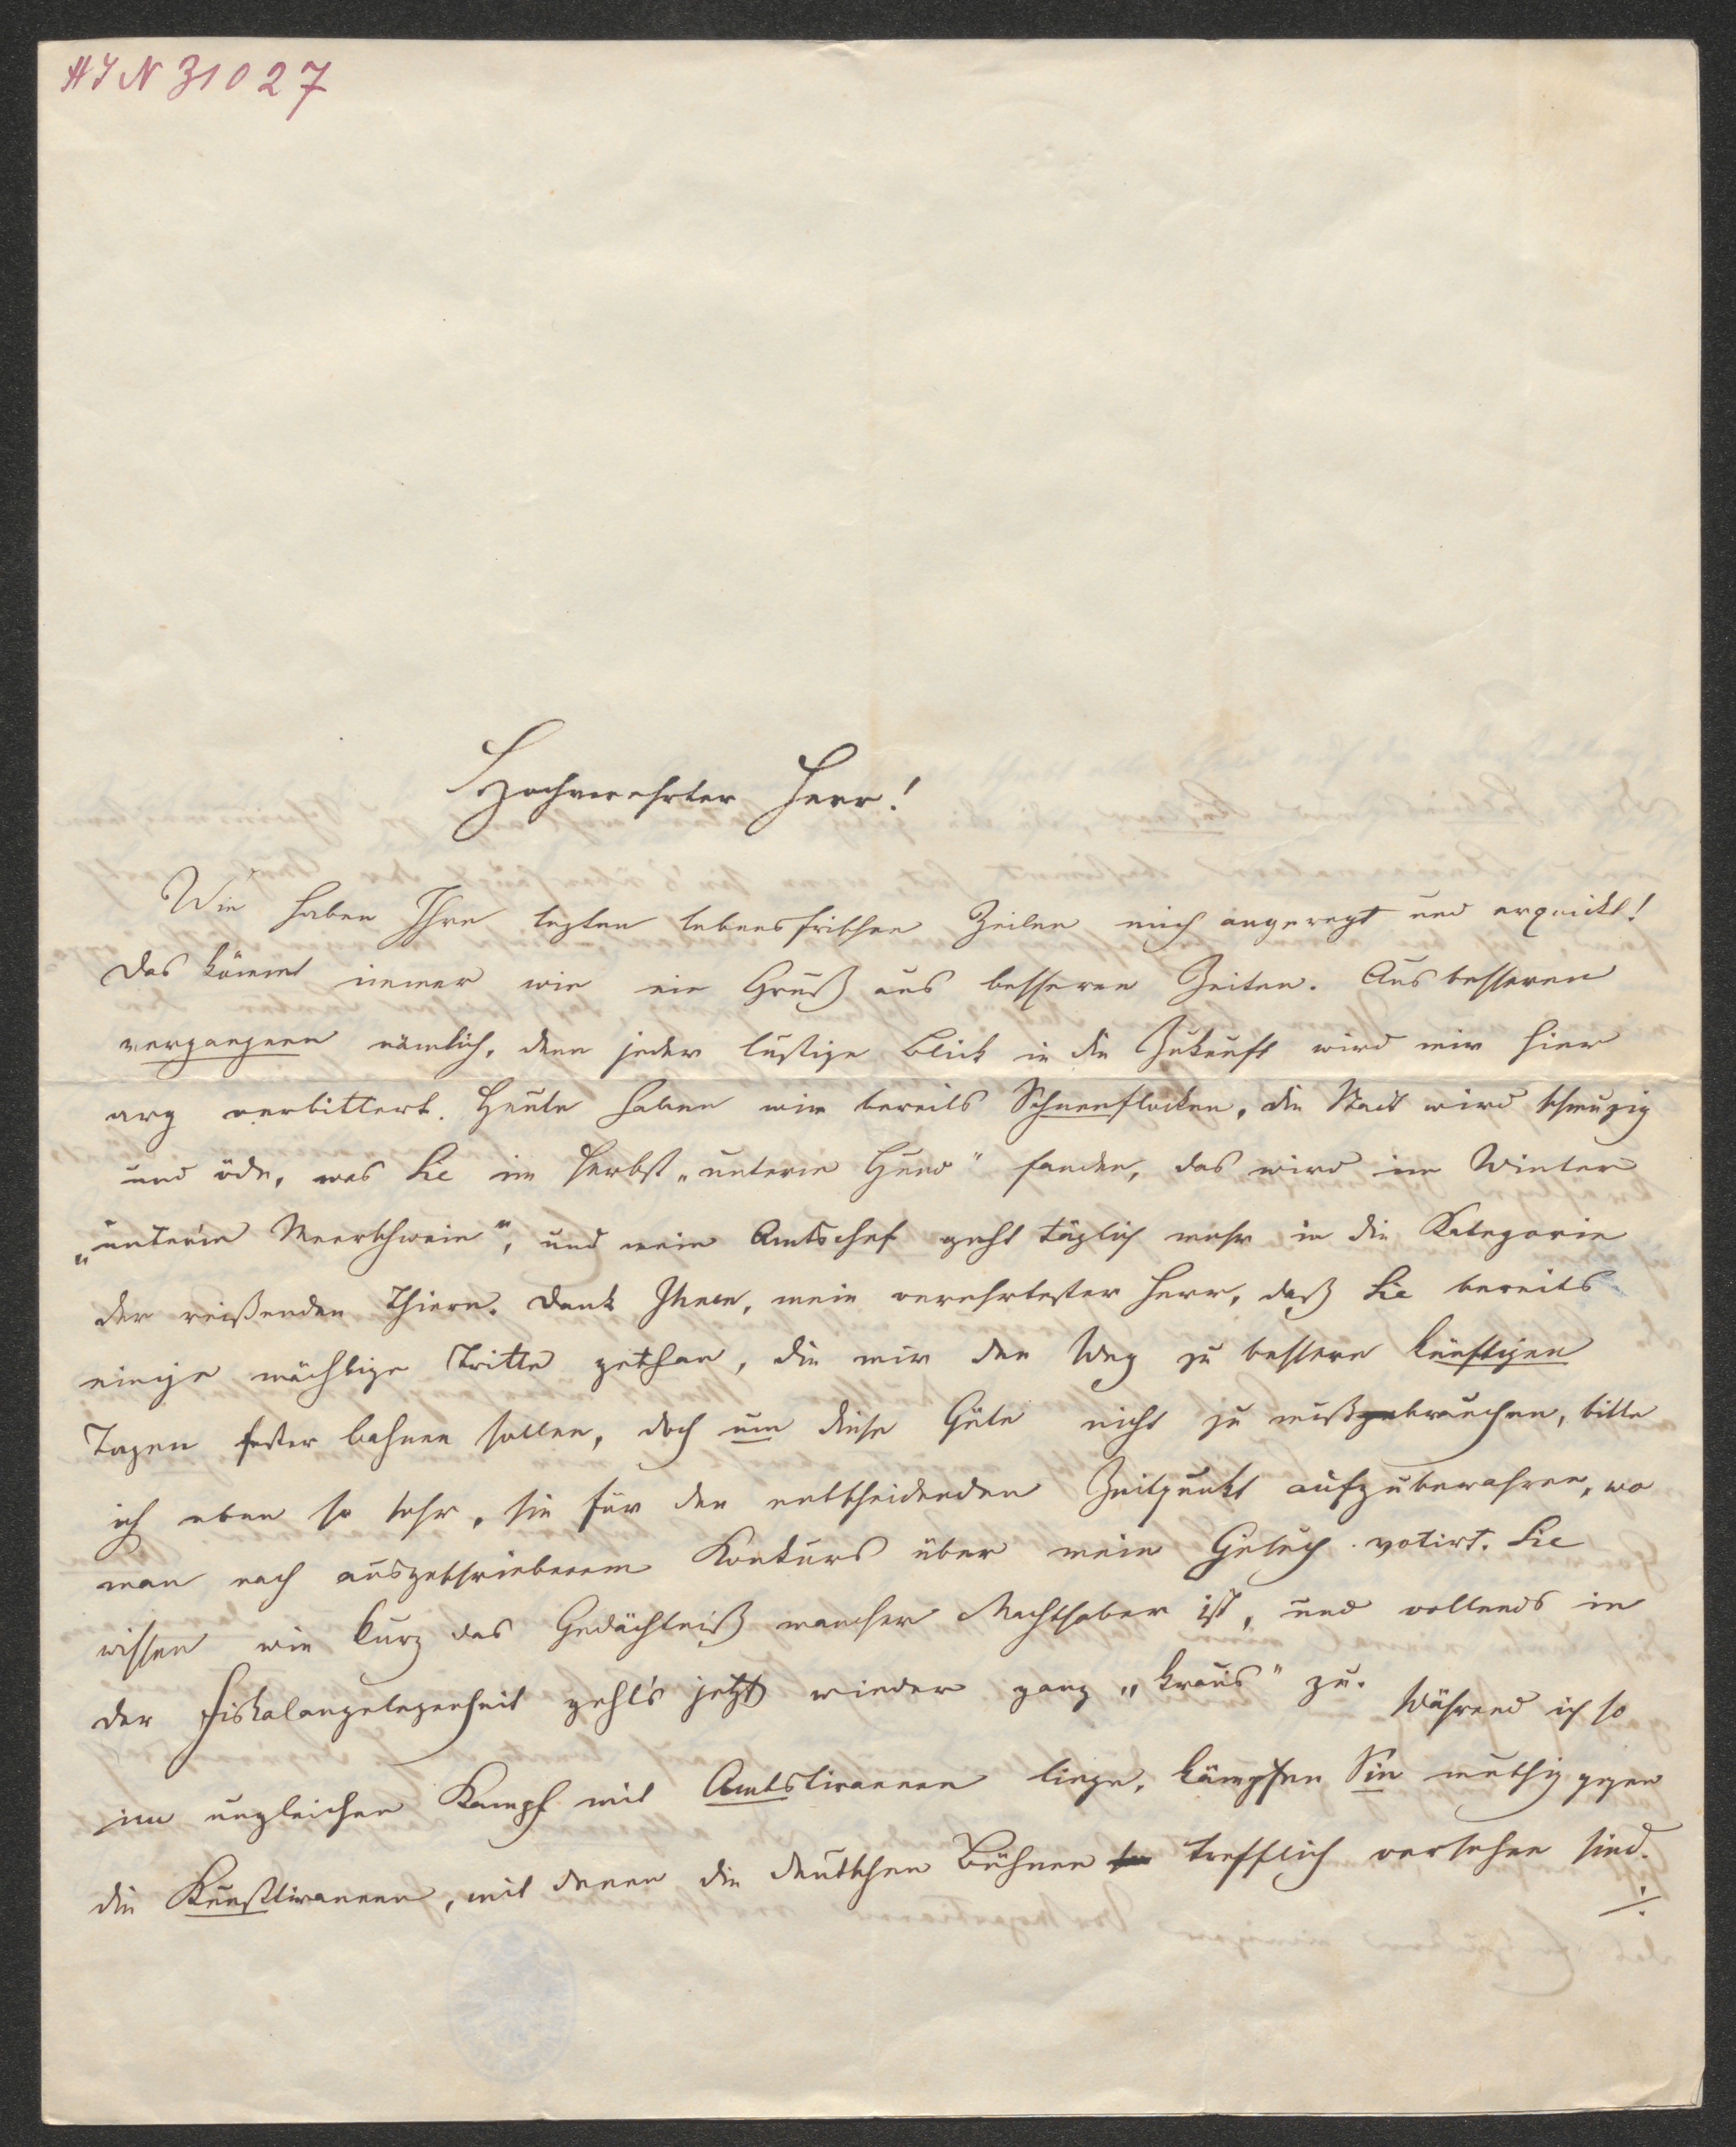 HIN 31027
Hochverehrter Herr!
Wie haben Ihre lezten lebensfrischen Zeilen mich angeregt und erquickt!
Das kömmt immer wie ein Gruß aus besseren Zeiten. Aus besseren
vergangenen nämlich, denn jeder lustige Blick in die Zukunft wird mir hier
arg verbittert. Heute haben wir bereits Schneeflocken, die Stadt wird schmuzig
und öde, was Sie im Herbst „unterm Hund" fanden, das wird im Winter
„unterm Meerschwein", und mein Amtschef geht täglich mehr in die Kategorie
der reißenden Thiere. Dank Ihnen, mein verehrtester Herr, daß Sie bereits
einige mächtige Tritte gethan, die mir den Weg zu bessern künftigen
Tagen fester bahnen sollen, doch um diese Güte nicht zu mißgebrauchen, bitte
ich eben so sehr, sie für den entscheidenden Zeitpunkt aufzubewahren, wo
man nach ausgeschriebenem Konkurs über mein Gesuch votirt. Sie
wissen wie kurz das Gedächtniß mancher Machthaber ist, und vollends in
der Fiskalangelegenheit geht's jetzt wieder ganz „kraus" zu. Während ich so
im ungleichen Kampf mit Amtstirannen liege, kämpfen Sie muthig gegen
die Kunsttirannen, mit denen die deutschen Bühnen so trefflich versehen sind.
./.